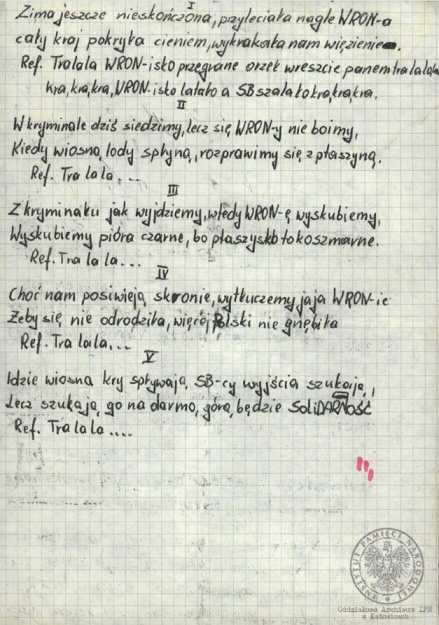 I
Zima jeszcze nieskończona, przyleciała nagle WRON-a
cały kraj pokryła cieniem, wykrakała nam więzienie.
Ref. Tralala WRON-isko przegrane orzeł wreszcie panem tra la lala
kra, kra, kra, WRON-isko latało a SB szalało kra, kra, kra.
II
W kryminale dziś siedzimy, lecz się WRON-y nie boimy,
Kiedy wiosną, lody spłyną, rozprawimy się z ptaszyną.
Ref. Tra la la...
III
Z kryminału jak wyjdziemy, wtedy WRON-ę wyskubiemy,
Wyskubiemy pióra czarne, bo ptaszysko to koszmarne.
Ref. Tra la la...
IV
Choć nam posiwieją, skronie, wytłuczemy jaja WRON-ie
Żeby się, nie odrodziła, więcej Polski nie gnębiła
Ref. Tra la la...
V
Idzie wiosna kry spływają, SB-cy wyjścia szukają,
Lecz szukają, go na darmo, górą, będzie SoliDARNOŚĆ
Ref. Tra la la....
INSTYTUT PAMIĘCI NARODOWEJ
Oddziałowe Archiwum IPN
w Katowicach